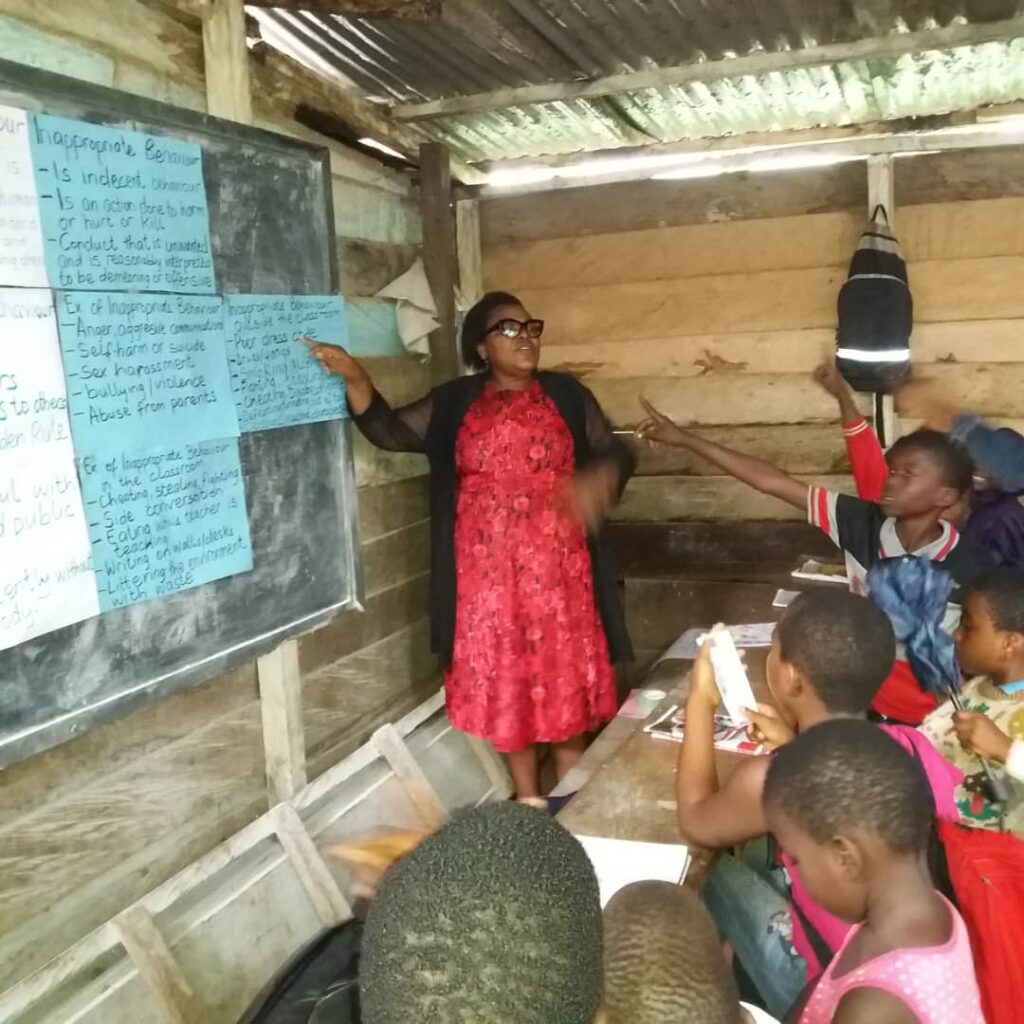 our
is
and
Inappropriate Behaviour
- Is indecent behaviour
- Is an action done to harm
or hurt or kill
- Conduct that is unwanted
and is reasonably interpreted
to be demeaning or offensive
ehaviour
ers
s to others
den Rule
ul with
d public
ently without
ody.
Ex. of Inappropriate Behaviour
- Anger, aggresive communication
- Self harm or suicide
- Sex harassment
- bullying/violence
- Abuse from parents
Inappropriate Behaviour
outside the classroom
- Poor dress code
- Drugs/
- Fighting
Ex of Inappropriate Behaviour
in the classroom
- Cheating, stealing, fighting
- Side conversation
- Eating while teacher is
teaching
- Writing on walls/desks
- Littering the environment
with waste